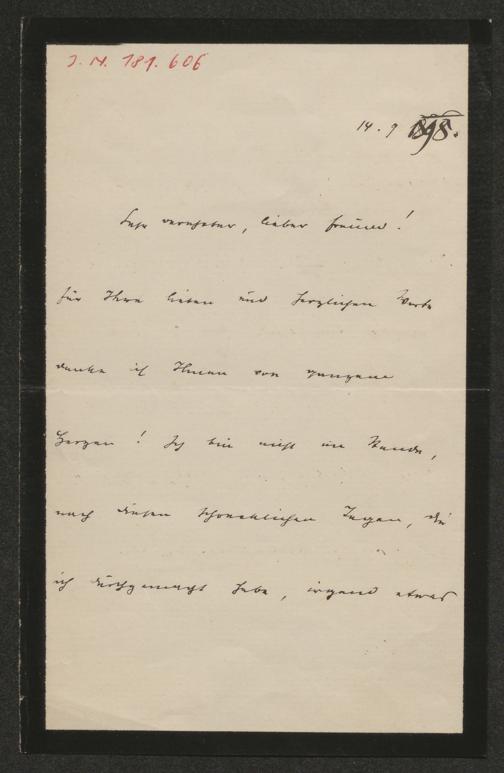 J. N. 181.606
14. 9 1898.
Sehr verehrter, lieber Freund!
für Ihre lieben und herzlichen Worte
danke ich Ihnen von ganzem
Herzen! Ich bin nicht im Stande,
nach diesen schrecklichen Tagen, die
ich durchgemacht habe, irgend etwas